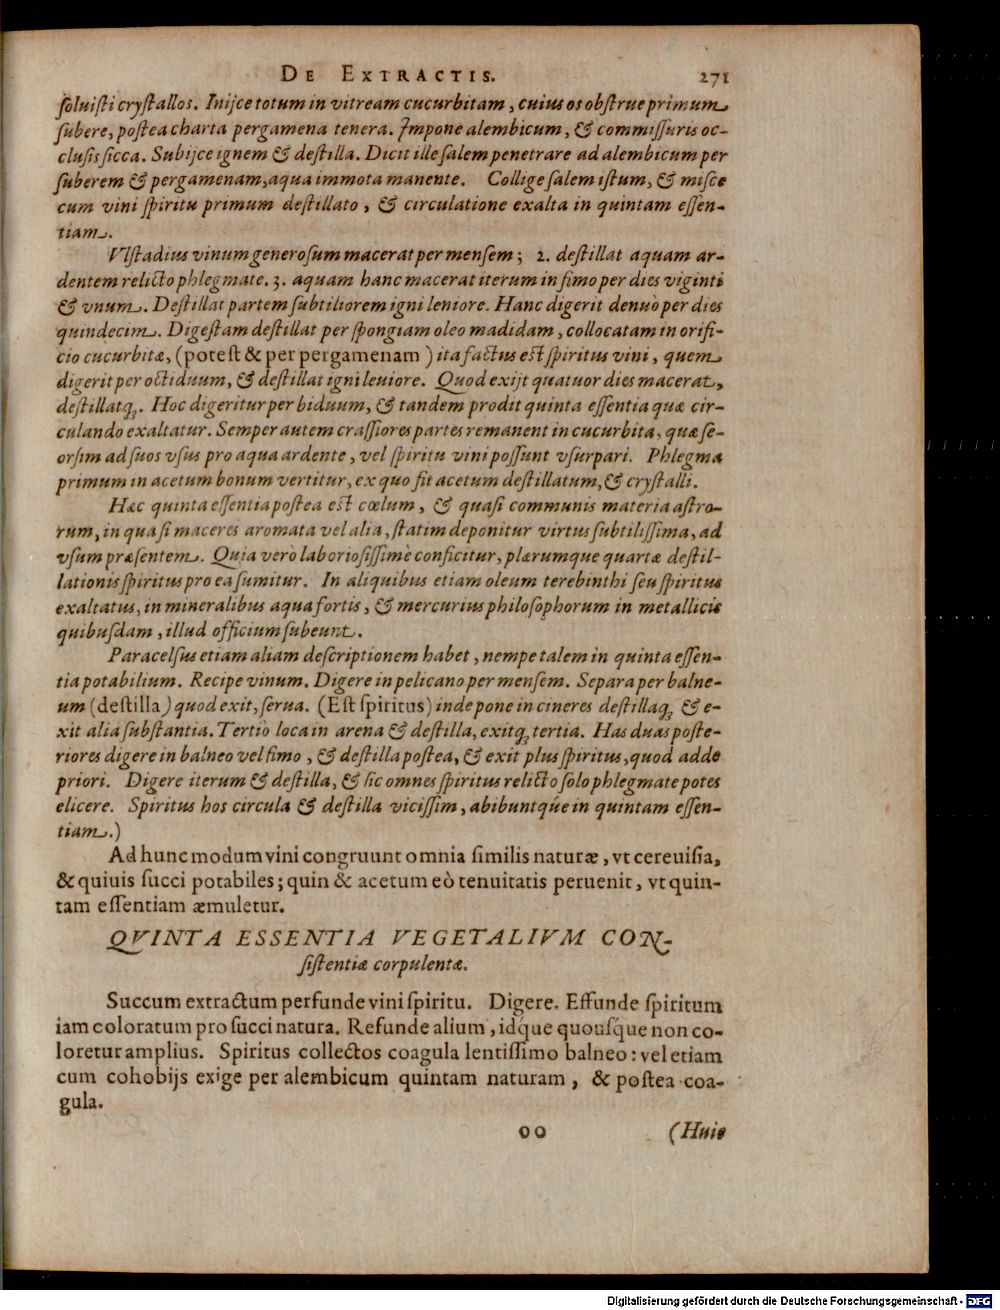 DE EXTRACTIS. 271
ſoluiſti cryſtallos. Inijce totum in vitream cucurbitam, cuius os obſtrue primum
ſubere, poſtea charta pergamena tenera. Impone alembicum, & commiſſuris oc-
cluſis ſicca. Subijce ignem & deſtilla. Dicit ille ſalem penetrare ad alembicum per
ſuberem & pergamenam, aqua immota manente. Collige ſalem iſtum, & miſce
cum vini ſpiritu primum deſtillato, & circulatione exalta in quintam eſſen-
tiam.
Vlſtadius vinum generoſum macerat per menſem; 2. deſtillat aquam ar-
dentem relicto phlegmate. 3. aquam hanc macerat iterum in fimo per dies viginti
& vnum. Deſtillat partem ſubtiliorem igni leniore. Hanc digerit denuò per dies
quindecim. Digeſtam deſtillat per ſpongiam oleo madidam, collocatam in orifi-
cio cucurbitæ, (poteſt & per pergamenam) ita factus eſt ſpiritus vini, quem
digerit per octiduum, & deſtillat igni leuiore. Quod exijt quatuor dies macerat,
deſtillatq́;. Hoc digeritur per biduum, & tandem prodit quinta eſſentia quæ cir-
culando exaltatur. Semper autem craſſiores partes remanent in cucurbita, quæ ſe-
orſim ad ſuos vſus pro aqua ardente, vel ſpiritu vini poſſunt vſurpari. Phlegma
primum in acetum bonum vertitur, ex quo fit acetum deſtillatum, & cryſtalli.
Hæc quinta eſſentia poſtea eſt cœlum, & quaſi communis materia aſtro-
rum, in qua ſi maceres aromata vel alia, ſtatim deponitur virtus ſubtiliſſima, ad
vſum præſentem. Quia verò laborioſiſſimè conficitur, plærumque quartæ deſtil-
lationis ſpiritus pro ea ſumitur. In aliquibus etiam oleum terebinthi ſeu ſpiritus
exaltatus, in mineralibus aqua fortis, & mercurius philoſophorum in metallicis
quibuſdam, illud officium ſubeunt.
Paracelſus etiam aliam deſcriptionem habet, nempe talem in quinta eſſen-
tia potabilium. Recipe vinum. Digere in pelicano per menſem. Separa per balne-
um (deſtilla) quod exit, ſerua. (Eſt ſpiritus) inde pone in cineres deſtillaq́; & e-
xit alia ſubſtantia. Tertiò loca in arena & deſtilla, exitq́; tertia. Has duas poſte-
riores digere in balneo vel fimo, & deſtilla poſtea, & exit plus ſpiritus, quod adde
priori. Digere iterum & deſtilla, & ſic omnes ſpiritus relicto ſolo phlegmate potes
elicere. Spiritus hos circula & deſtilla viciſſim, abibuntq́ue in quintam eſſen-
tiam.)
Ad hunc modum vini congruunt omnia ſimilis naturæ, vt cereuiſia,
& quiuis ſucci potabiles; quin & acetum eò tenuitatis peruenit, vt quin-
tam eſſentiam æmuletur.
QVINTA ESSENTIA VEGETALIVM CON-
ſiſtentiæ corpulentæ.
Succum extractum perfunde vini ſpiritu. Digere. Effunde ſpiritum
iam coloratum pro ſucci natura. Refunde alium, idq́ue quouſq́ue non co-
loretur amplius. Spiritus collectos coagula lentiſſimo balneo: vel etiam
cum cohobijs exige per alembicum quintam naturam, & poſtea coa-
gula.
oo (Huic
Digitalisierung gefördert durch die Deutsche Forschungsgemeinschaft - DFG